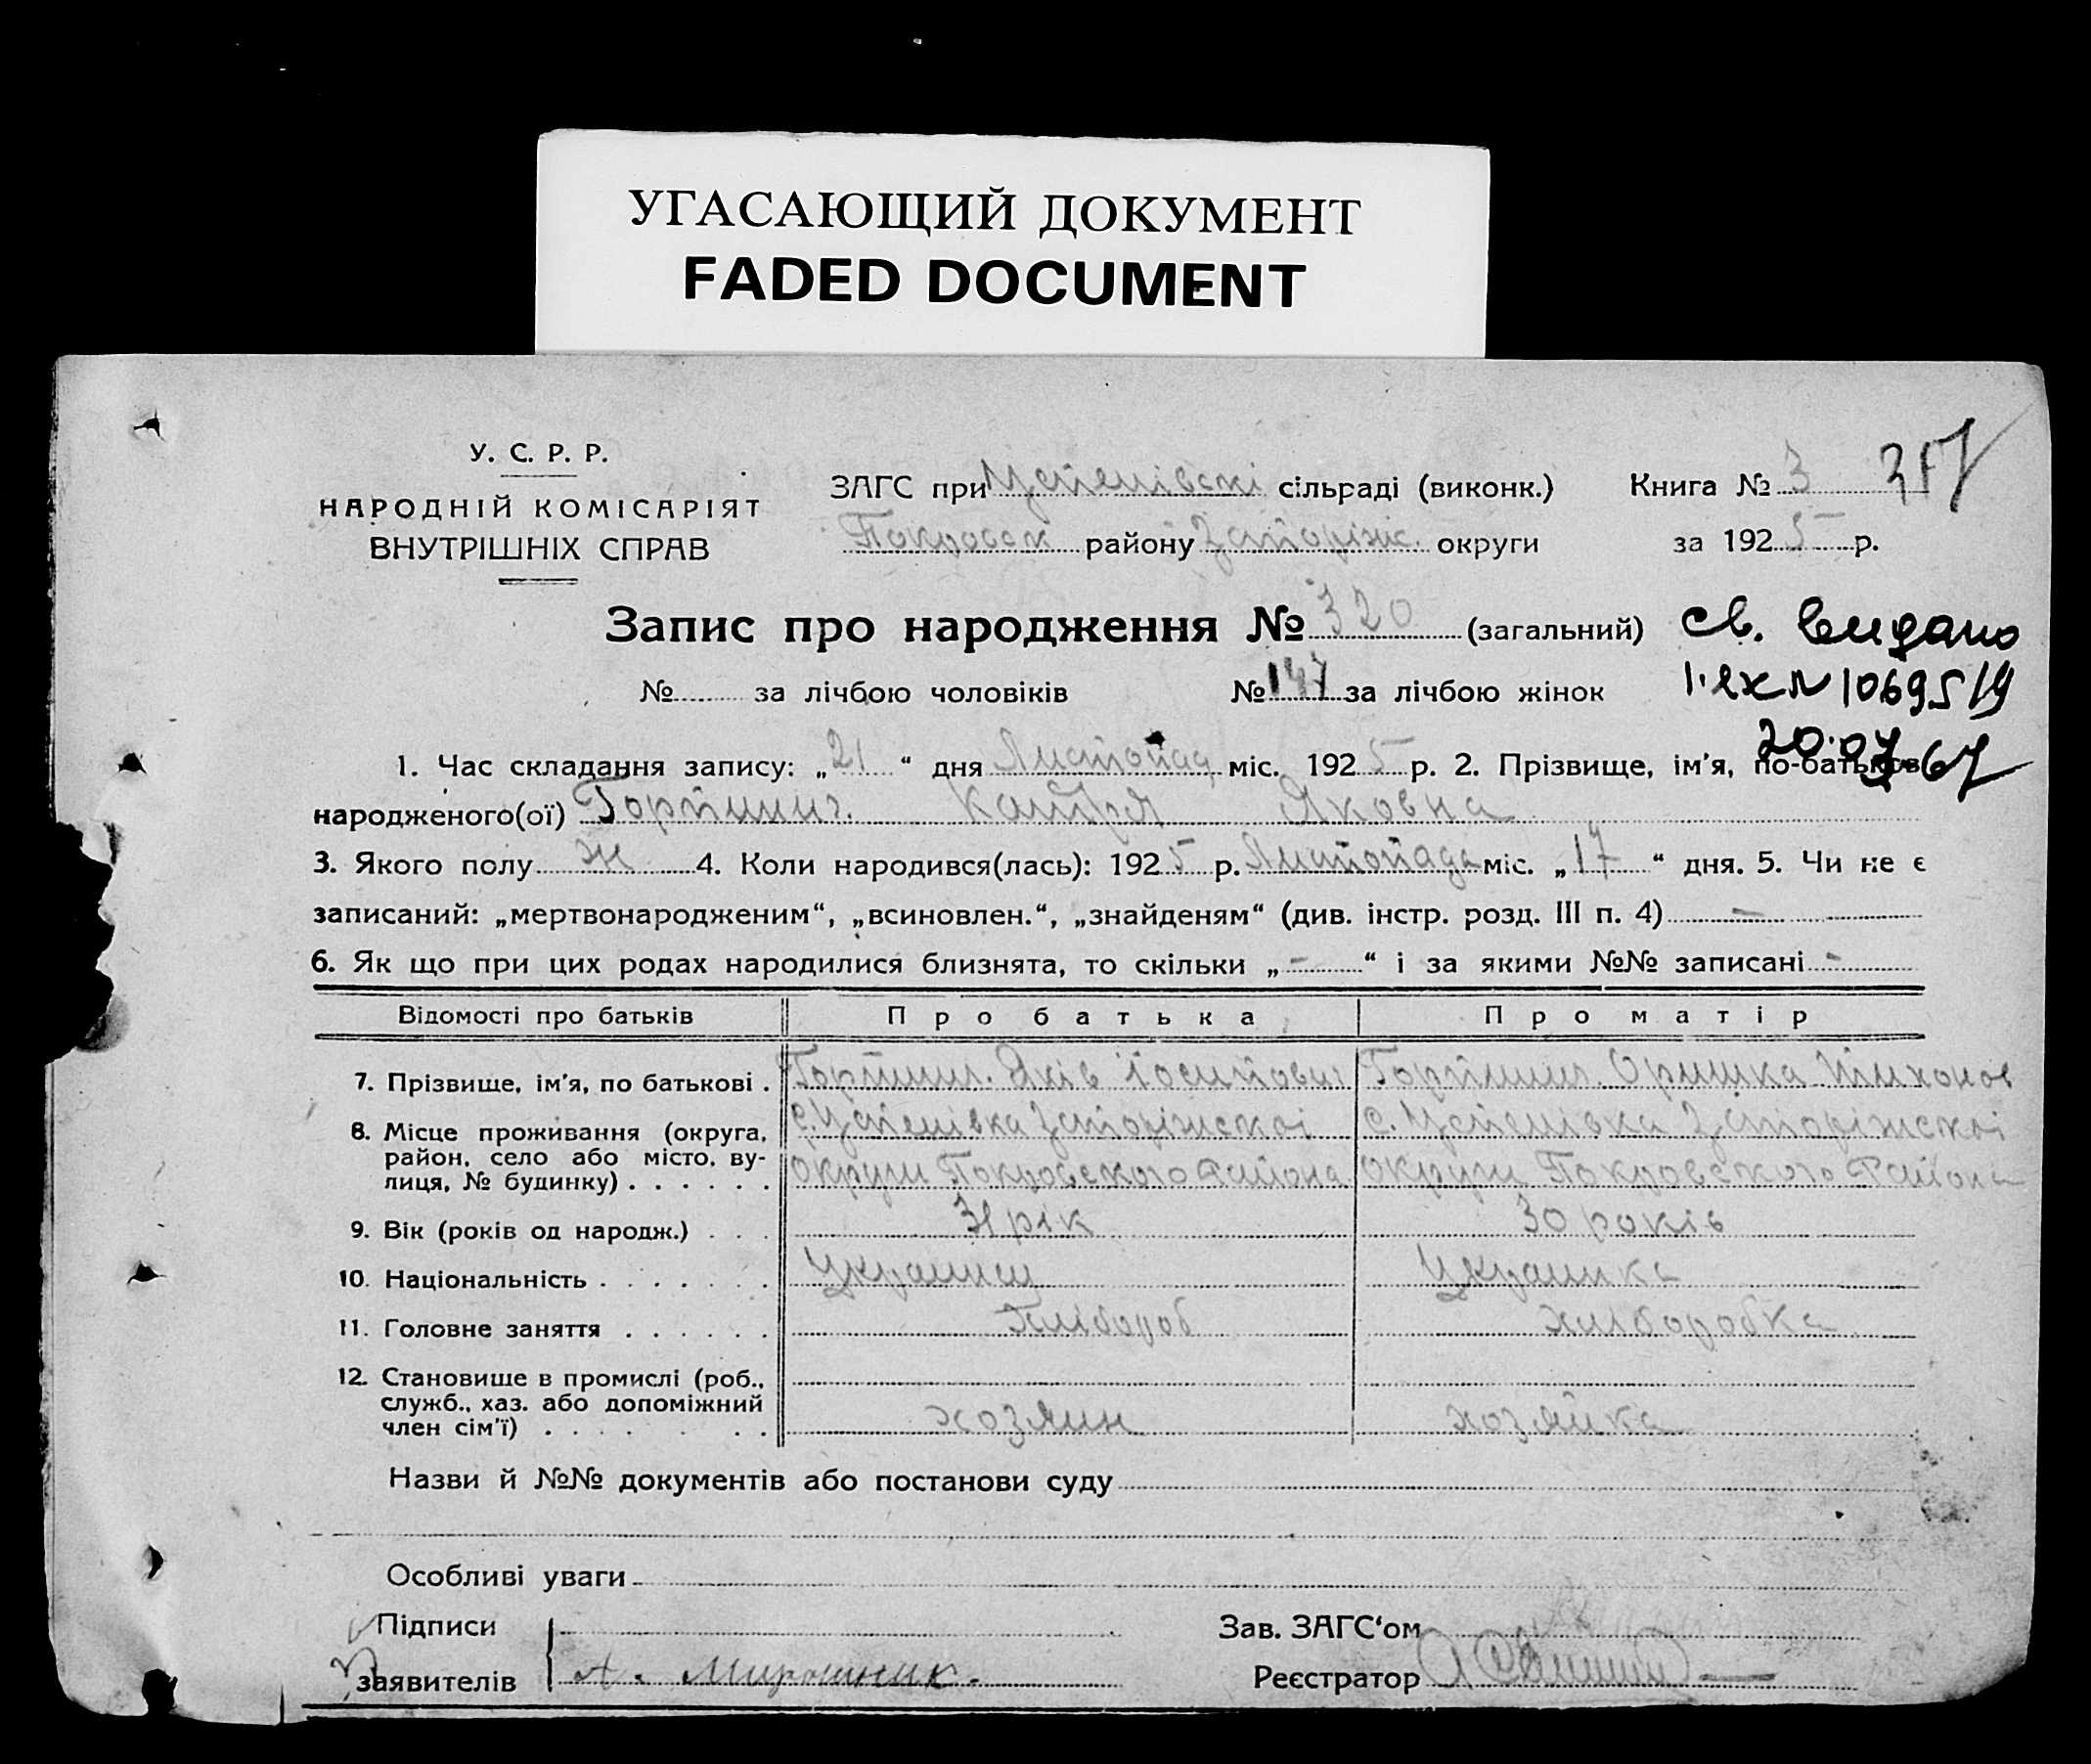 УГАСАЮЩИЙ ДОКУМЕНТ
FADED DOCUMENT
У. С. Р. Р.
НАРОДНІЙ КОМІСАРІЯТ
ВНУТРІШНІХ СПРАВ
ЗАГС при Успенівскі сільраді (виконк.)
Покровск району Запоріж. округи
Книга № 3 317
за 1925 р.
Запис про народження № 320 (загальний)
№ за лічбою чоловіків № 147 за лічбою жінок
св. видано
1069519
20.07.67
1. Час складання запису: „21“ дня Листопад міс. 1925 р. 2. Прізвище, ім'я, по-батькові
народженого(ої) Горпинич. Катря Яковна
3. Якого полу ж 4. Коли народився(лась): 1925 р. Листопада міс. „17“ дня. 5. Чи не є
записаний: „мертвонародженим“, „всиновлен.“, „знайденям“ (див. інстр. розд. III п. 4) –
6. Як що при цих родах народилися близнята, то скільки „–“ і за якими №№ записані –
Відомості про батьків Про батька Про матір
7. Прізвище, ім'я, по батькові . Горпинич. Яків Йосипович Горпинич. Оришка Тихонов
8. Місце проживання (округа, район, село або місто, вулиця, № будинку) . . . . . . с. Успенівка Запоріжскоі округи Покровского Района с. Успенівка Запоріжскоі округи Покровского Района
9. Вік (років од народж.) . . . 31 рік 30 років
10. Національність . . . . . . . Украинец Украинка
11. Головне заняття . . . . . . Хлібороб хліборобка
12. Становище в промислі (роб., служб., хаз. або допоміжний член сім'ї) . . . . . . . хозяин хозяйка
Назви й №№ документів або постанови суду
Особливі уваги
Підписи
заявителів А. Мирошник.
Зав. ЗАГС‘ом
Реєстратор